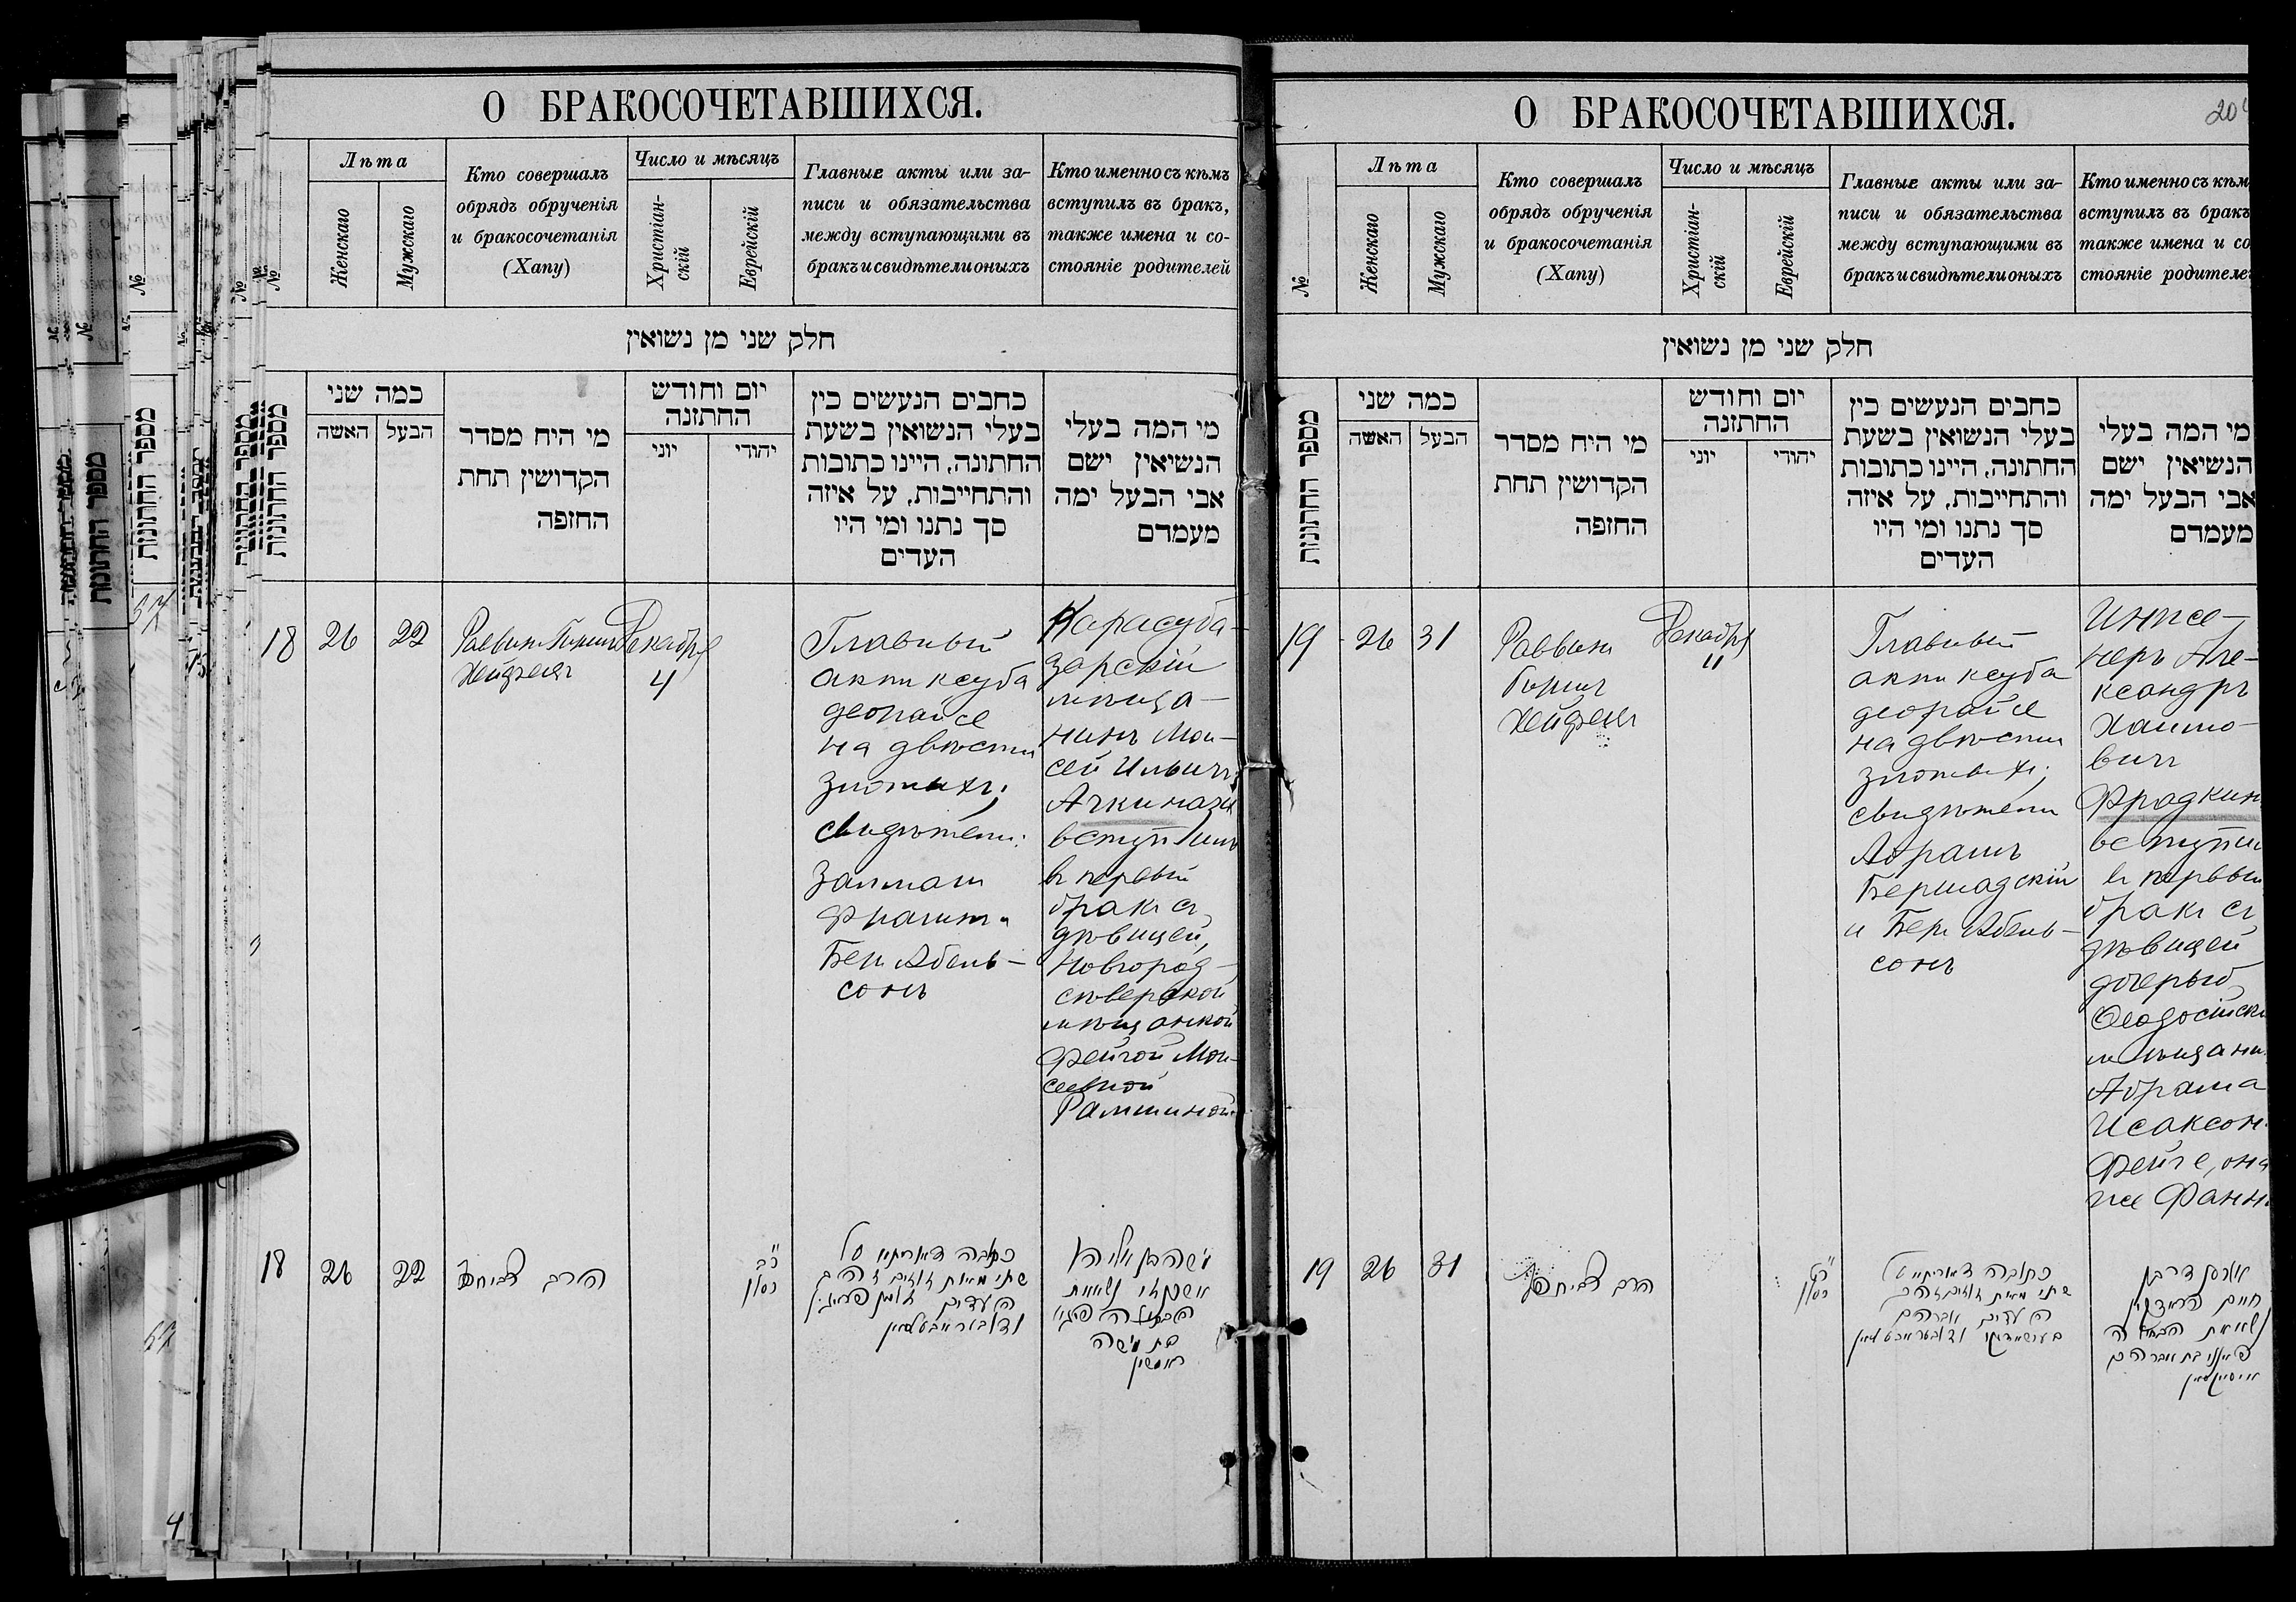 О БРАКОСОЧЕТАВШИХСЯ.
№
Лѣта
Женскаго
Мужскаго
Кто совершалъ
обрядъ обрученія
и бракосочетанія
(Хапу)
Число и мѣсяцъ
Христіан-
скій
Еврейскій
Главные акты или за-
писи и обязательства
между вступающими въ
бракъ и свидѣтели оныхъ
Кто именно съ кѣмъ
вступилъ въ бракъ,
также имена и со-
стояніе родителей
חלק שני מן נשואין
מספר החתונות
כמה שני
האשה
הבעל
מי היח מסדר
הקדושין תחת
החזפה
יום וחודש
החתזנה
יוני
יהודי
כחבים הנעשים כין
בעלי הנשואין בשעת
החתונה, היינו כתובות
והתחייבות, על איזה
סך נתנו ומי היו
העדים
מי המה בעלי
הנשיאין ישם
אבי הבעל ימה
מעמדם
18
26
22
Раввинъ
Декабр
4
Главный
актъ ксуба
деорайсе
на двѣсти
злотыхъ;
свидѣтели:
Залманъ
Абель-
сонъ
Карасуба-
зарскій
мѣща-
нинъ Мои-
сей Ильичъ
Ачкинази
вступилъ
въ первый
бракъ съ
дѣвицей,
Новгород-
сѣверской
мѣщанкой
Фейгой Мои-
сеевной
18
26
22
הרב
כתובה דאורייתא על
שתי מאות זוזים
העדים
משה בן אליהו
אשכנזי נשא את
בת משה
О БРАКОСОЧЕТАВШИХСЯ.
20
№
Лѣта
Женскаго
Мужскаго
Кто совершалъ
обрядъ обрученія
и бракосочетанія
(Хапу)
Число и мѣсяцъ
Христіан-
скій
Еврейскій
Главные акты или за-
писи и обязательства
между вступающими въ
бракъ и свидѣтели оныхъ
Кто именно съ кѣм
вступилъ въ бракъ
также имена и со
стояніе родителе
חלק שני מן נשואין
מספר החתונות
כמה שני
האשה
הבעל
מי היח מסדר
הקדושין תחת
החזפה
יום וחודש
החתזנה
יוני
יהודי
כחבים הנעשים כין
בעלי הנשואין בשעת
החתונה, היינו כתובות
והתחייבות, על איזה
סך נתנו ומי היו
העדים
מי המה בעלי
הנשיאין ישם
אבי הבעל ימה
מעמדם
19
26
31
Раввинъ
Декабр
11
Главный
актъ ксуба
деорайсе
на двѣсти
злотыхъ;
свидѣтели
Абрамъ
Бершадскій
и Беръ Абель-
сонъ
Инже-
неръ Але-
ксандръ
Хаимо-
вичъ
Фрадкин
вступи
въ первый
бракъ съ
дѣвицей
дочерью
Ѳеодосійск
мѣщани
Абрама
Исаксон
Фейге, она
же Фанн
19
26
31
הרב
כתובה דאורייתא על
שתי מאות זוזים
העדים אברהם
חיים
נשא את
בת אברהם